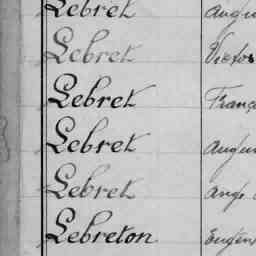 Lebret Augu
Lebret Victor
Lebret Franç
Lebret Augu
Lebret Ange
Lebreton Eugèn